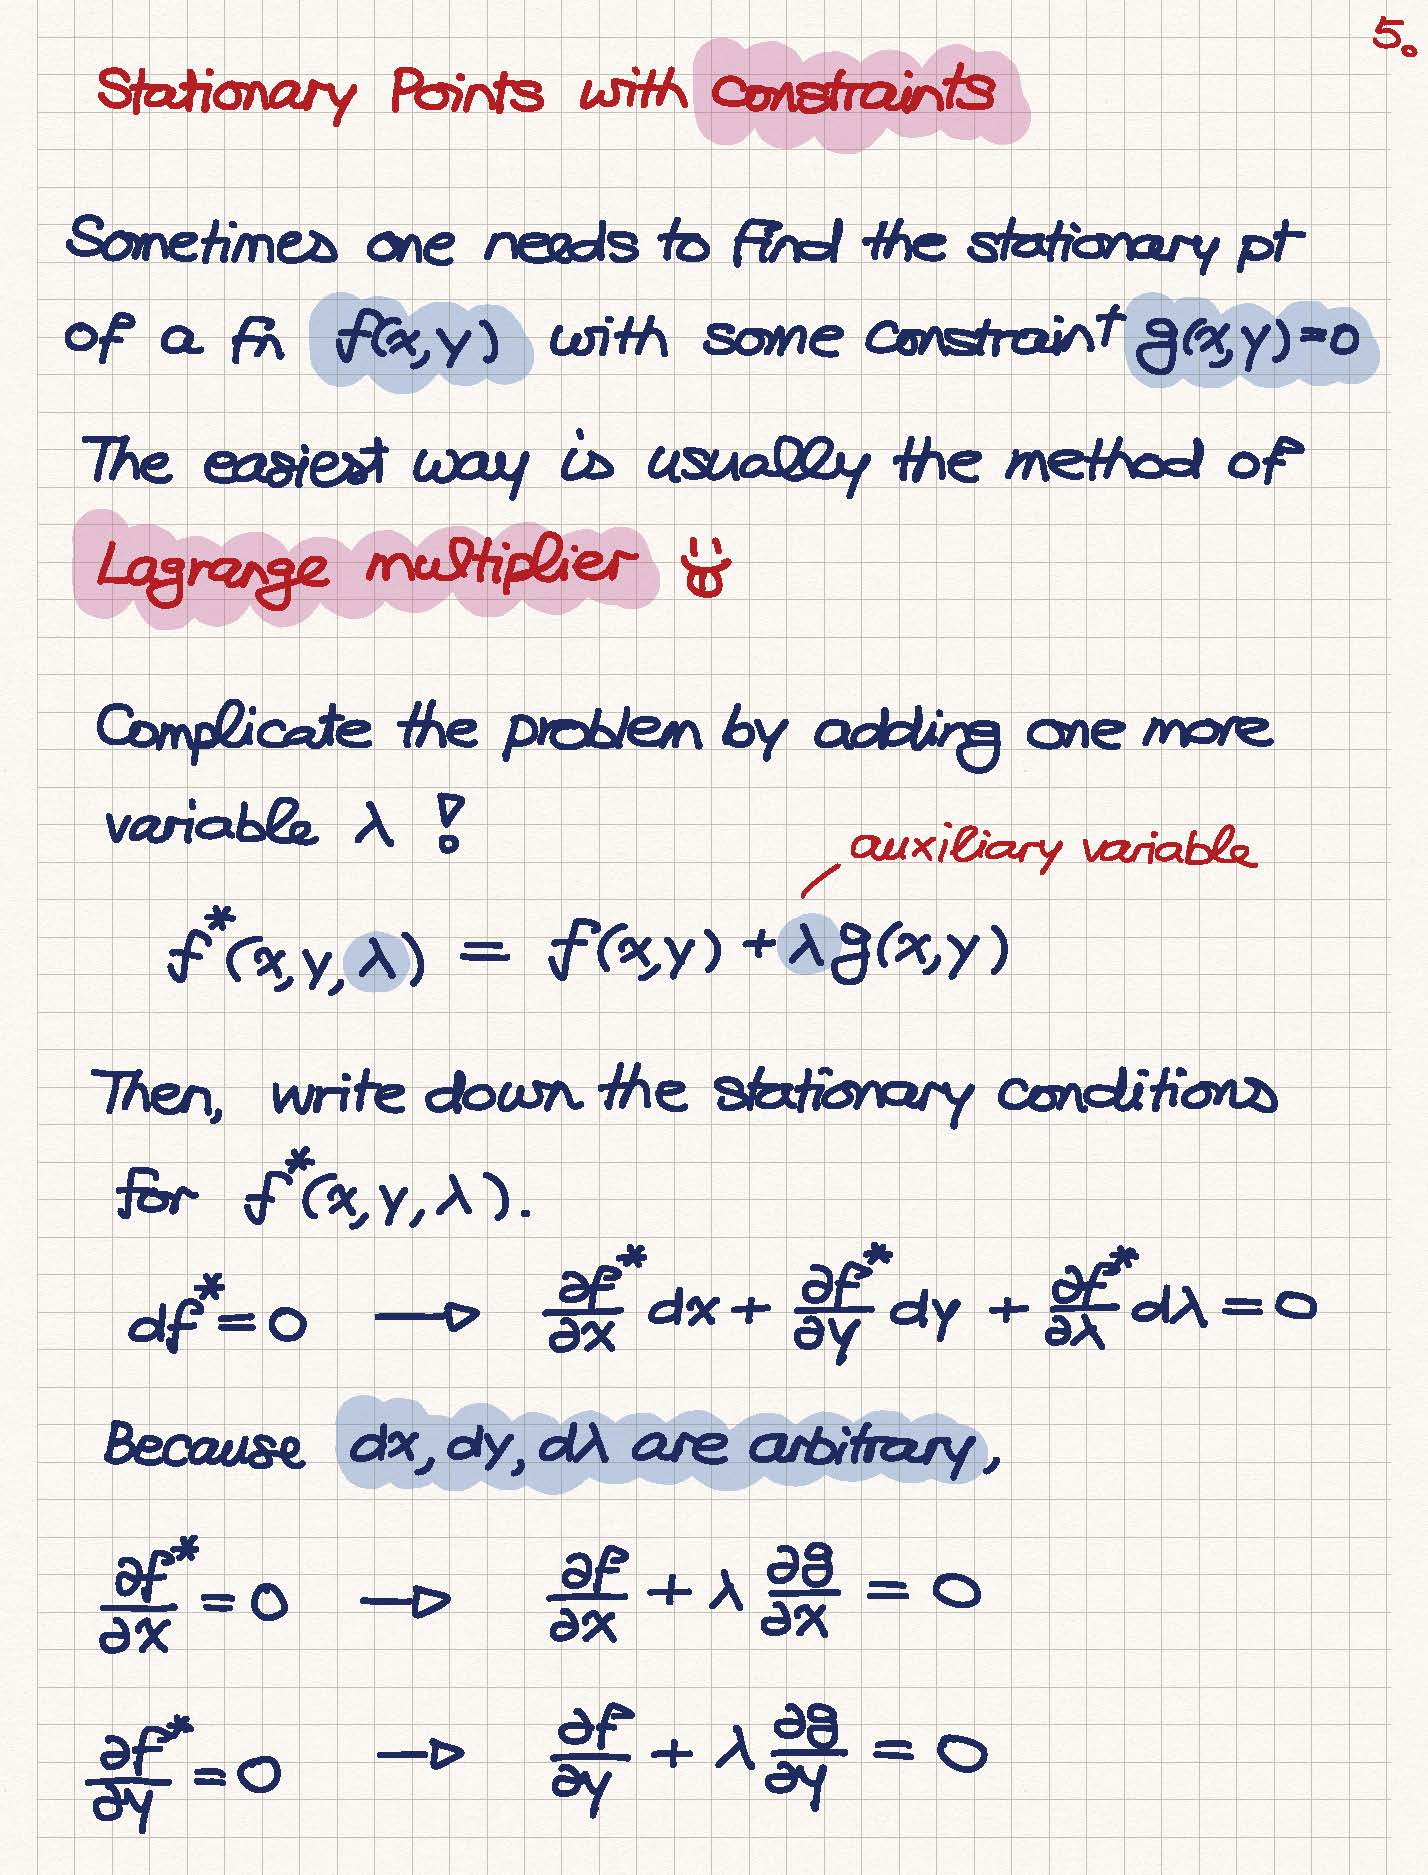 5.
Stationary Points with Constraints
Sometimes one needs to find the stationary pt
of a fn f(x,y) with some constraint g(x,y)=0
The easiest way is usually the method of
Lagrange multiplier
Complicate the problem by adding one more
variable λ !
auxiliary variable
f*(x,y,λ) = f(x,y) + λg(x,y)
Then, write down the stationary conditions
for f*(x,y,λ).
df*=0 → ∂f*/∂x dx + ∂f*/∂y dy + ∂f*/∂λ dλ = 0
Because dx, dy, dλ are arbitrary,
∂f*/∂x = 0 → ∂f/∂x + λ ∂g/∂x = 0
∂f*/∂y = 0 → ∂f/∂y + λ ∂g/∂y = 0